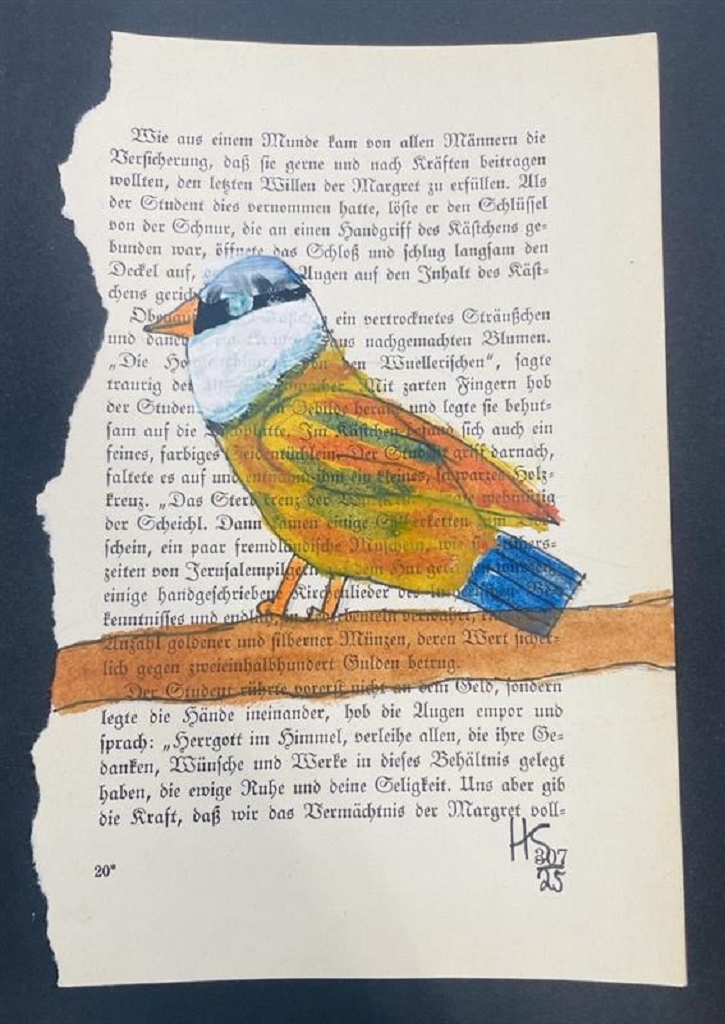 Wie aus einem Munde kam von allen Männern die
Versicherung, daß sie gerne und nach Kräften beitragen
wollten, den letzten Willen der Margret zu erfüllen. Als
der Student dies vernommen hatte, löste er den Schlüssel
von der Schnur, die an einen Handgriff des Kästchens ge-
bunden war, öffnete das Schloß und schlug langsam den
Deckel auf, Augen auf den Inhalt des Käst-
chens
ein vertrocknetes Sträußchen
und aus nachgemachten Blumen.
„Die den Wuellerischen“, sagte
traurig Mit zarten Fingern hob
der Gebilde heraus und legte sie behut-
sam auf die Im Kästchen befand sich auch ein
feines, farbiges Seidentüchlein. Der Student griff darnach,
faltete es auf und entnahm ihm ein kleines, schwarzes Holz-
kreuz. „Das der wehmütig
der Scheichl. Dann kamen einige zum Vor-
schein, ein paar fremdländische Muscheln, wie sie
zeiten von Jerusalempilgern dem Hut
einige handgeschriebene Kirchenlieder des
kenntnisses und endlich, verwahrt,
Anzahl goldener und silberner Münzen, deren Wert sicher-
lich gegen zweieinhalbhundert Gulden betrug.
Der Student rührte vorerst nicht an dem Geld, sondern
legte die Hände ineinander, hob die Augen empor und
sprach: „Herrgott im Himmel, verleihe allen, die ihre Ge-
danken, Wünsche und Werke in dieses Behältnis gelegt
haben, die ewige Ruhe und deine Seligkeit. Uns aber gib
die Kraft, daß wir das Vermächtnis der Margret voll-
HS
20* 307
25